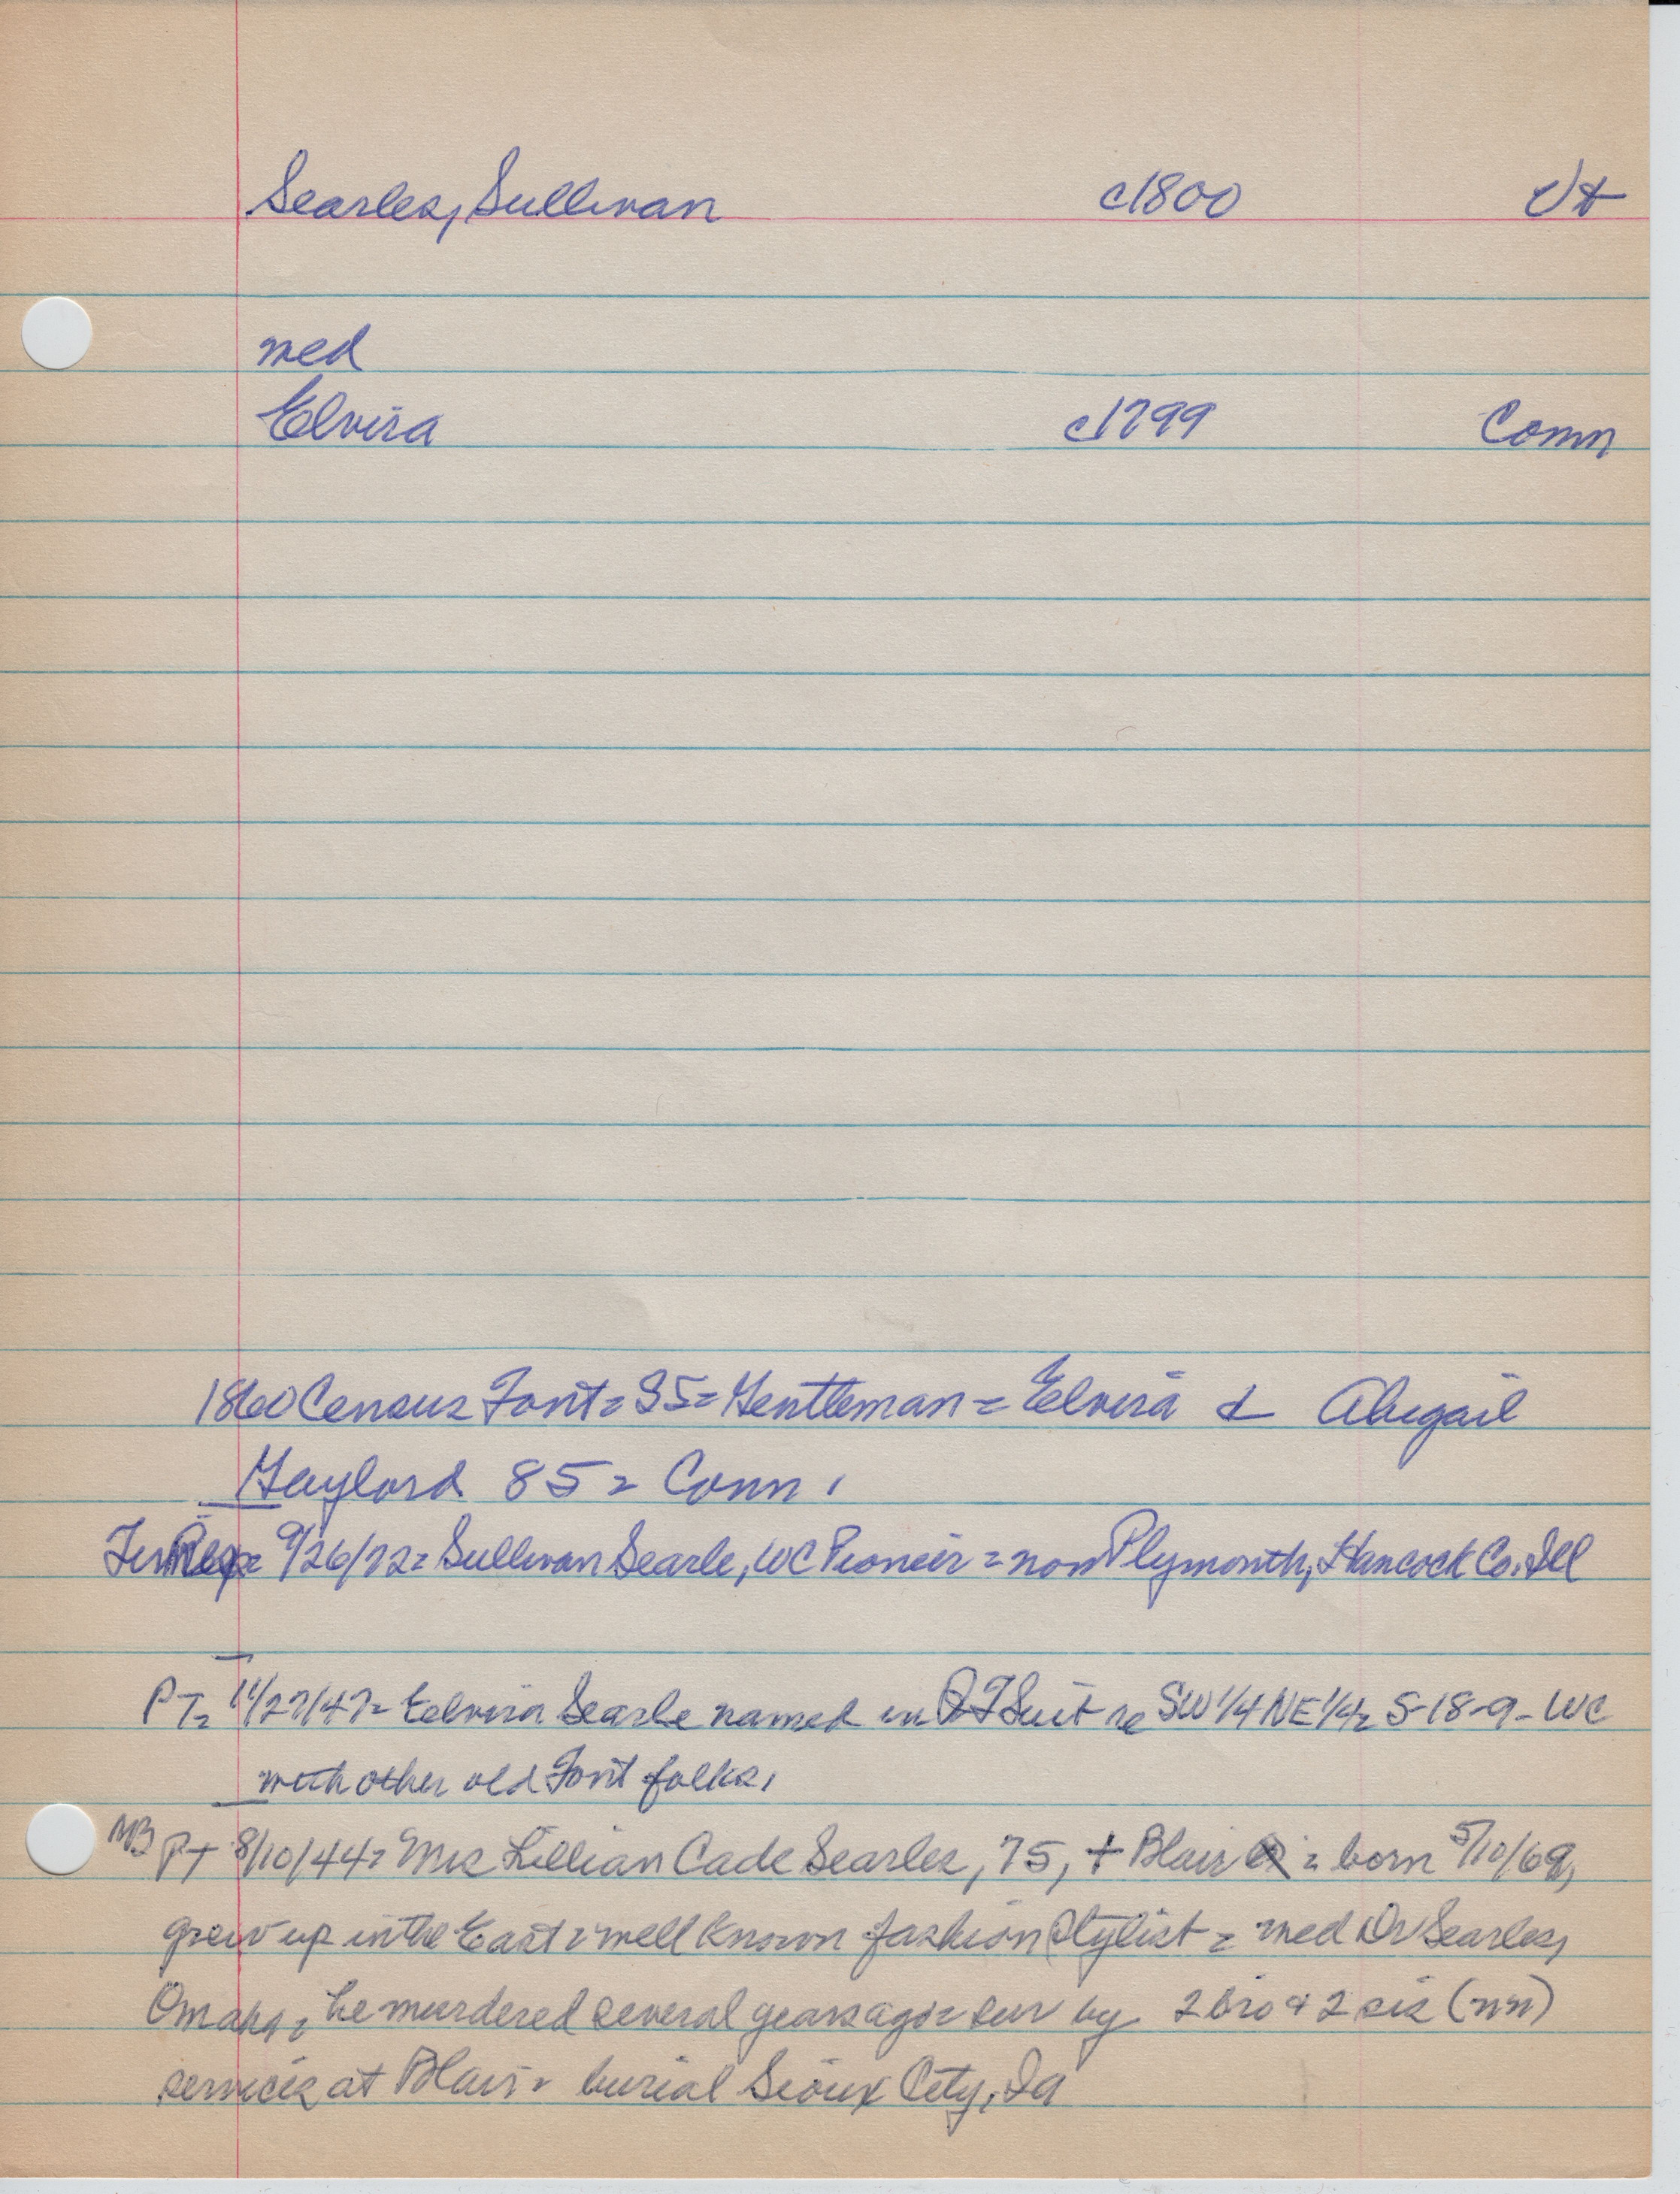 Searles, Sullivan c1800 Vt
med
Elvira c1799 Conn
1860 Census Font = 35 = Gentleman = Elvira & Abigail
Gaylord 85 = Conn.
9/26/72 = Sullivan Searle, WC Pioneer = now Plymouth, Hancock Co. Ill
PT = 11/27/47 = Elvira Searle named in QT Suit re SW 1/4 NE 1/4 S-18-9 - WC
with other old Font folks,
NB PT 8/10/44 = Mrs Lillian Cade Searles, 75, + Blair = born 5/10/69,
grew up in the East = well known fashion stylist = med Dr Searles,
Omaha, he murdered several years ago = sur by 2 bro & 2 sis (nn)
services at Blair = burial Sioux City, Ia